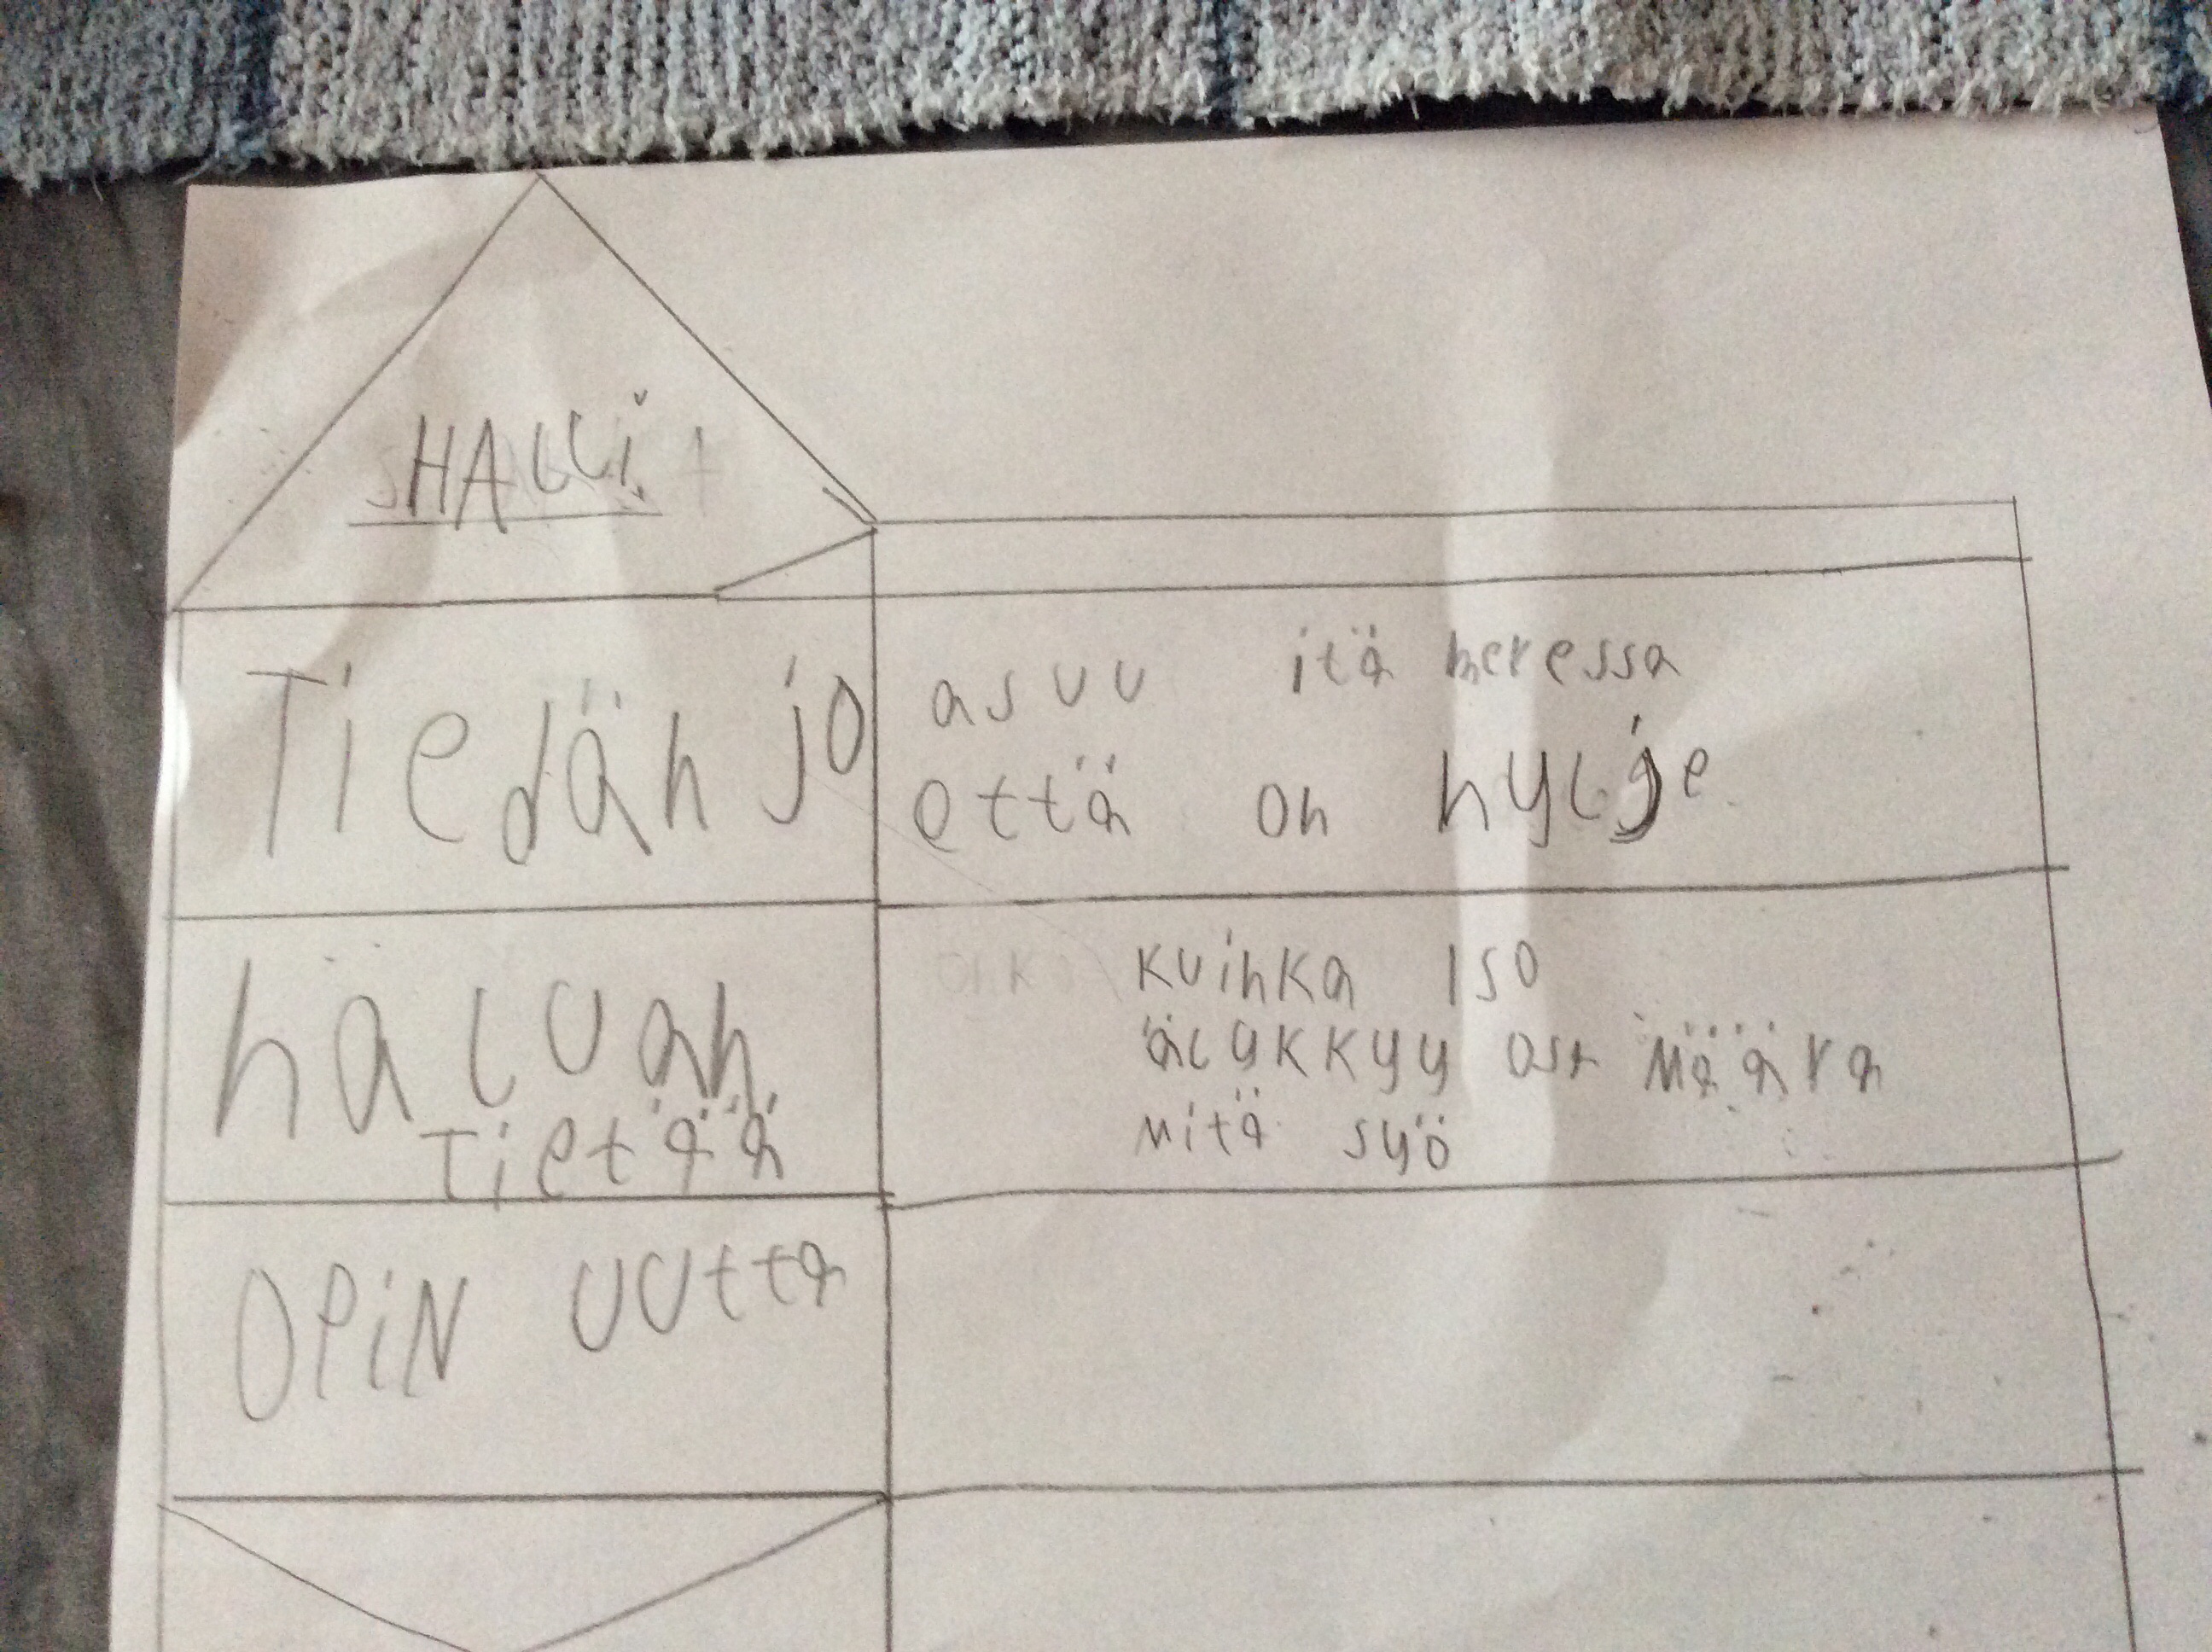 HALLi
Tiedän jo
asuu itä meressa
että on hylje
haluan
Tietää
kuinka iso
älykkyy osa määra
mitä syö
OPiN UUtta